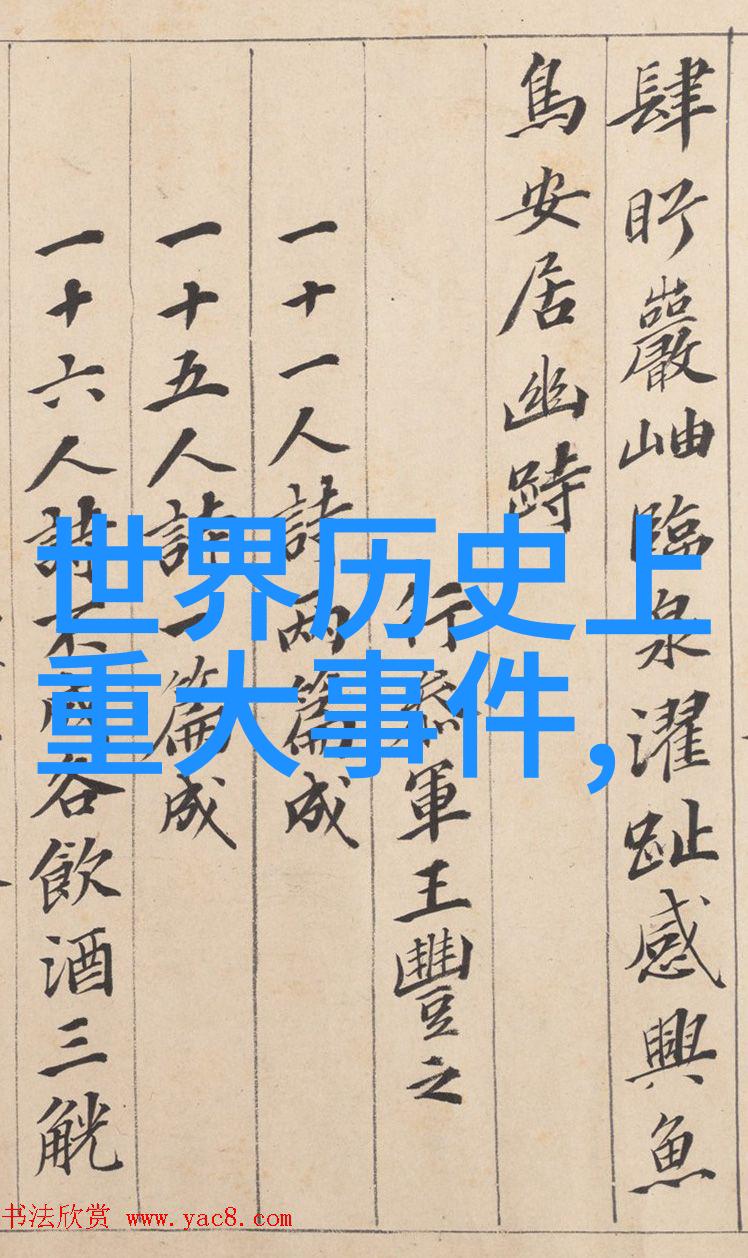 肆盱巖岫臨泉濯趾感興魚
鳥安居幽跱
行參軍王豐之
一十一人詩兩篇成
一十五人詩一篇成
一十六人詩不成各飲酒三觥
世界历史上
重大事件,
书法欣赏 www.yac8.com